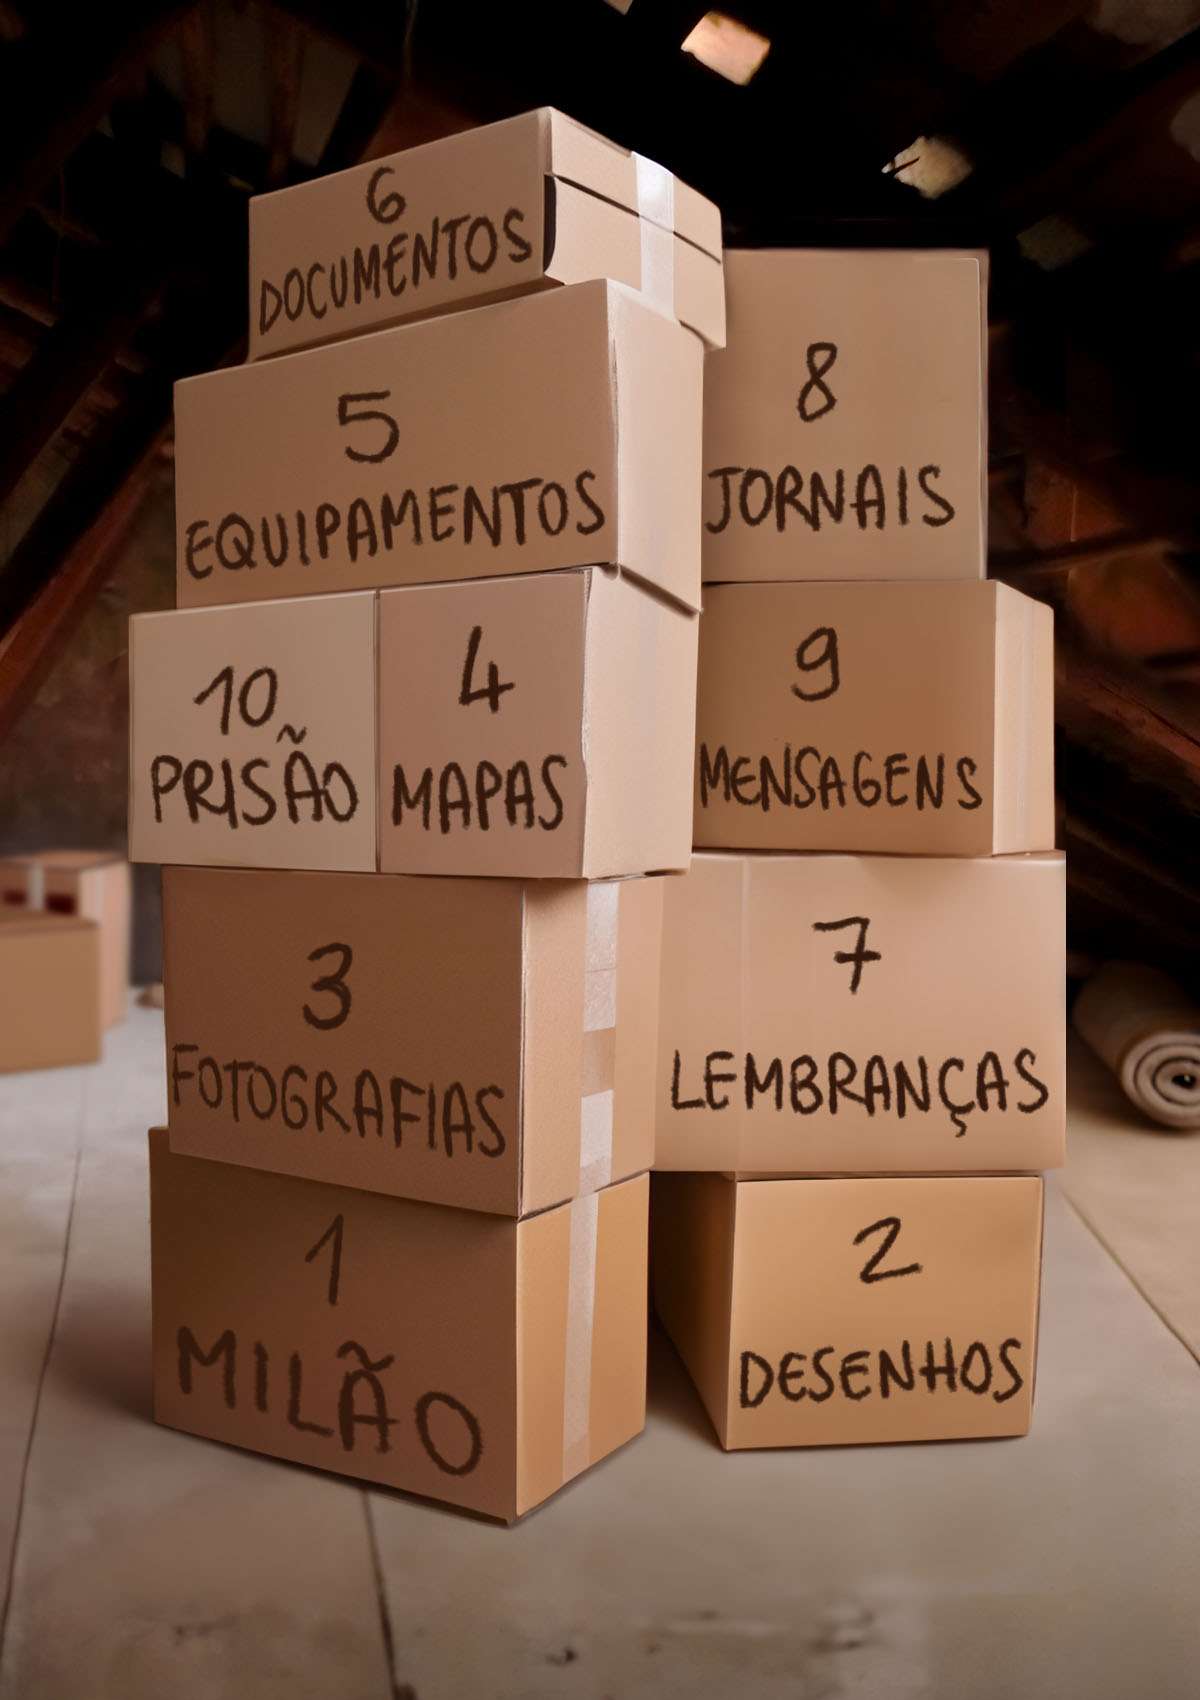 6
DOCUMENTOS
5
EQUIPAMENTOS
10
PRISÃO
4
MAPAS
3
FOTOGRAFIAS
1
MILÃO
8
JORNAIS
9
MENSAGENS
7
LEMBRANÇAS
2
DESENHOS